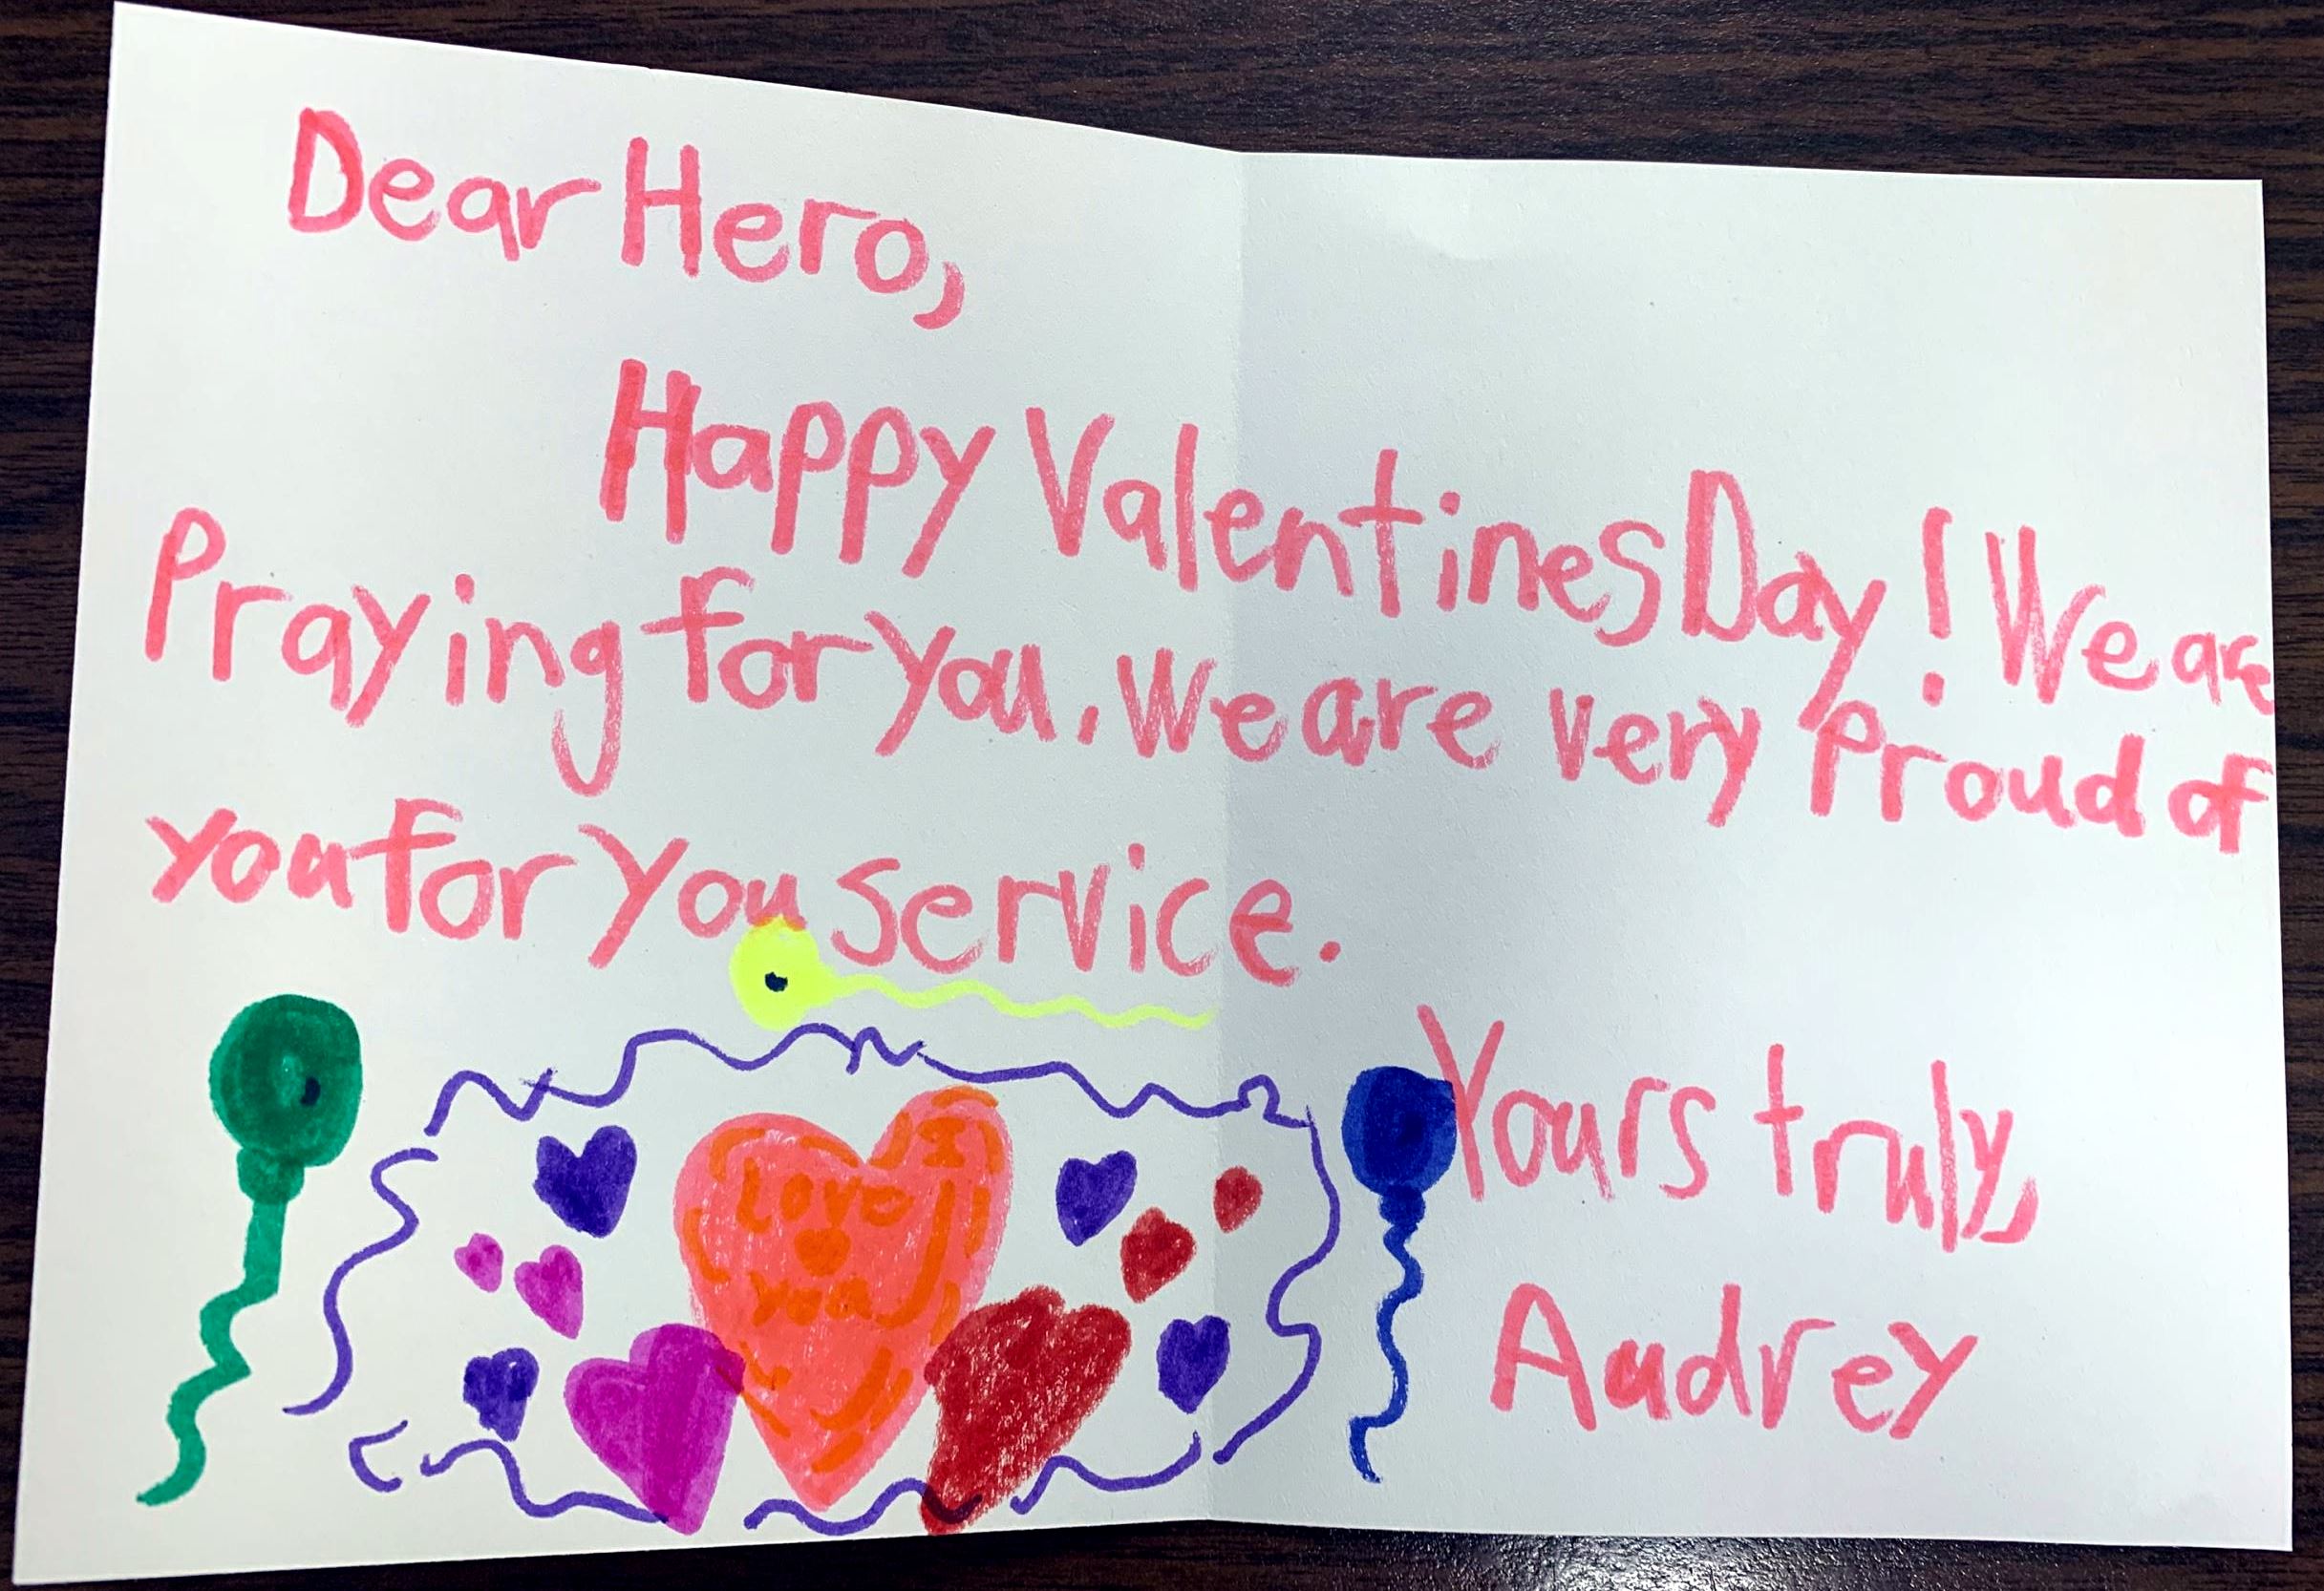 Dear Hero,
Happy Valentines Day! We are
Praying for you. We are very Proud of
you for you service.
I
Love
you
Yours truly,
Audrey